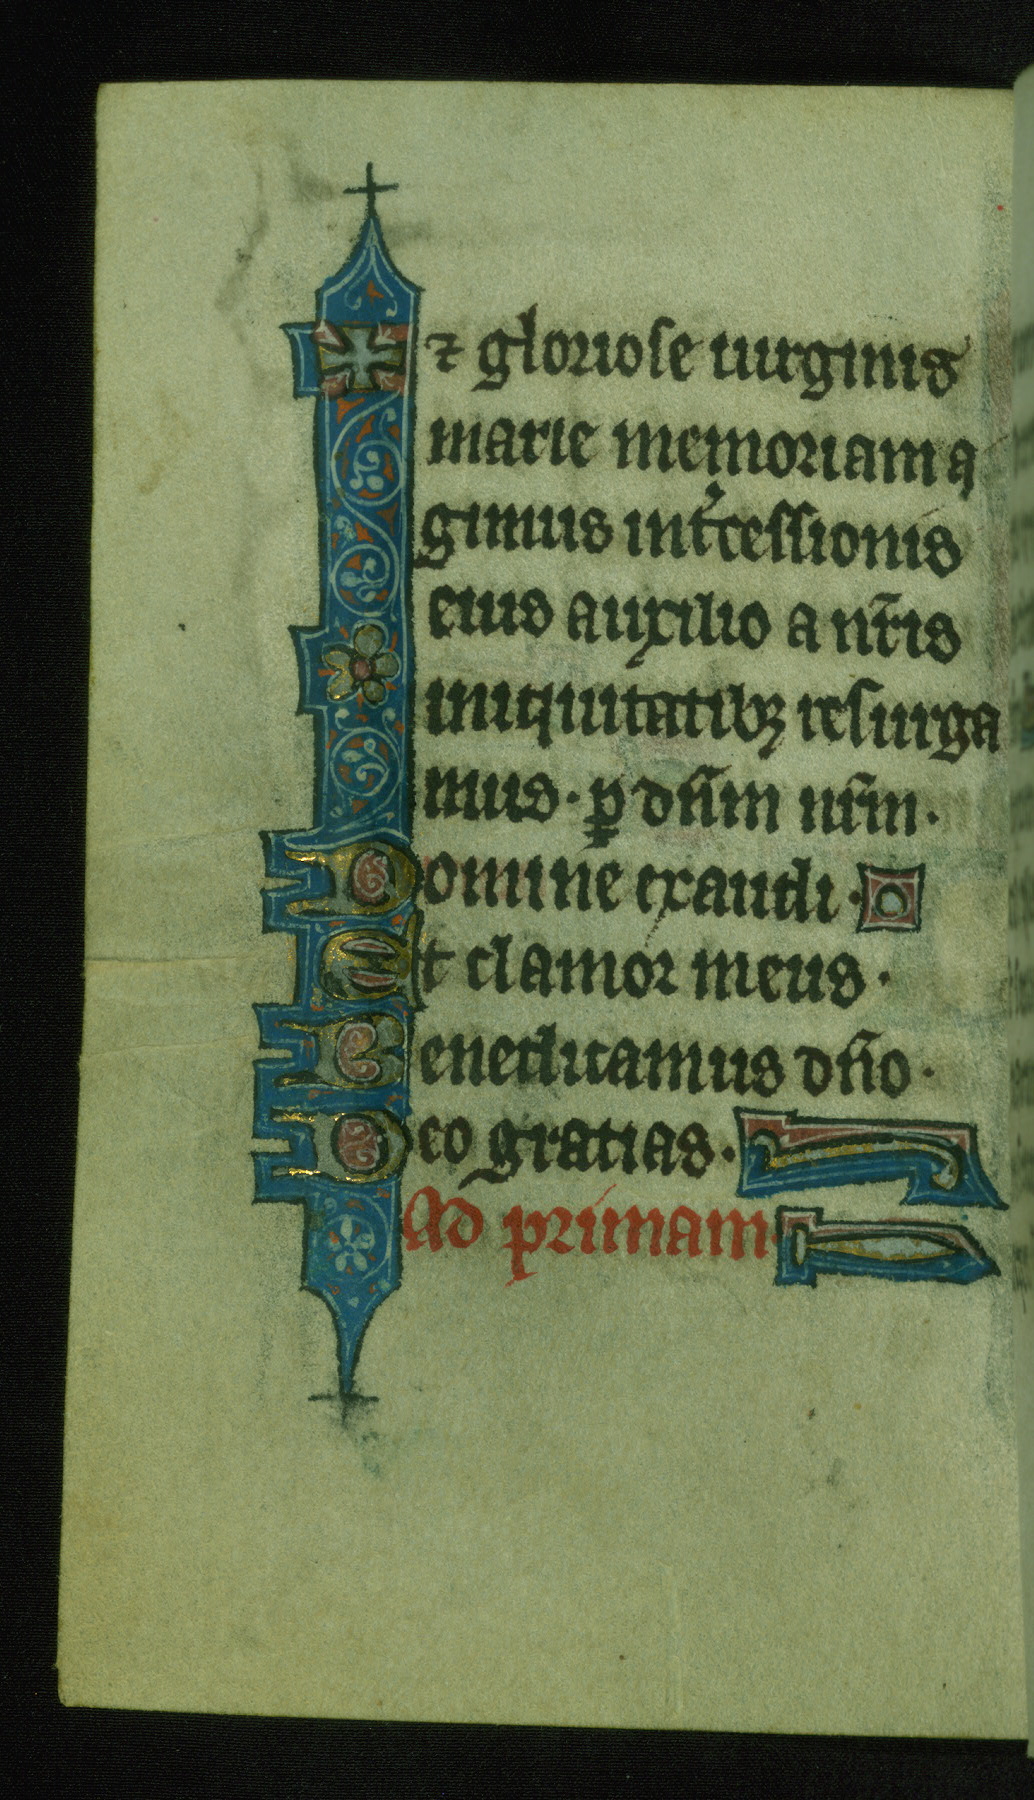 ⁊ gloriose uirginis
marie memoriam a
gimus int̉cessionis
eius auxilio a nr̄is
iniquitatibꝫ resurga
mus · ꝑ dn̄m nr̄m ·
Domine exaudi ·
Et clamor meus ·
Benedicamus dn̄o ·
Deo gratias ·
Ad primam ·